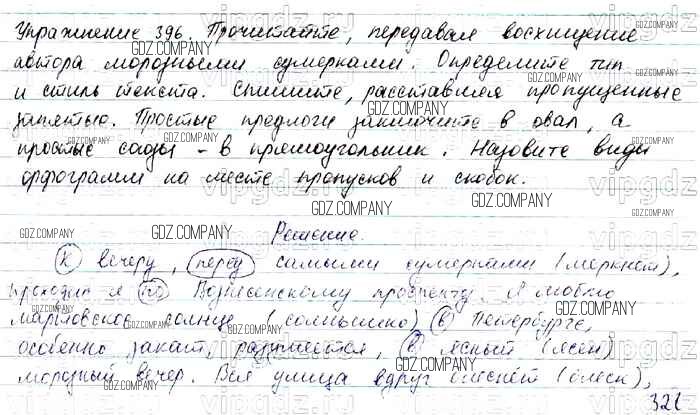 Упражнение 396. Прочитайте, передавая восхищение
автора морозными сумерками. Определите тип
и стиль текста. Спишите, расставляя пропущенные
запятые. Простые предлоги заключите в овал, а
простые союзы - в прямоугольник. Назовите виды
орфограмм на месте пропусков и скобок.
Решение.
К вечеру, перед самыми сумерками (меркнет),
проходил я по Вознесенскому проспекту. Я люблю
мартовское солнце (солнышко) в Петербурге,
особенно закат, разумеется, в ясный (ясен)
морозный вечер. Вся улица вдруг блеснёт (блеск),
321